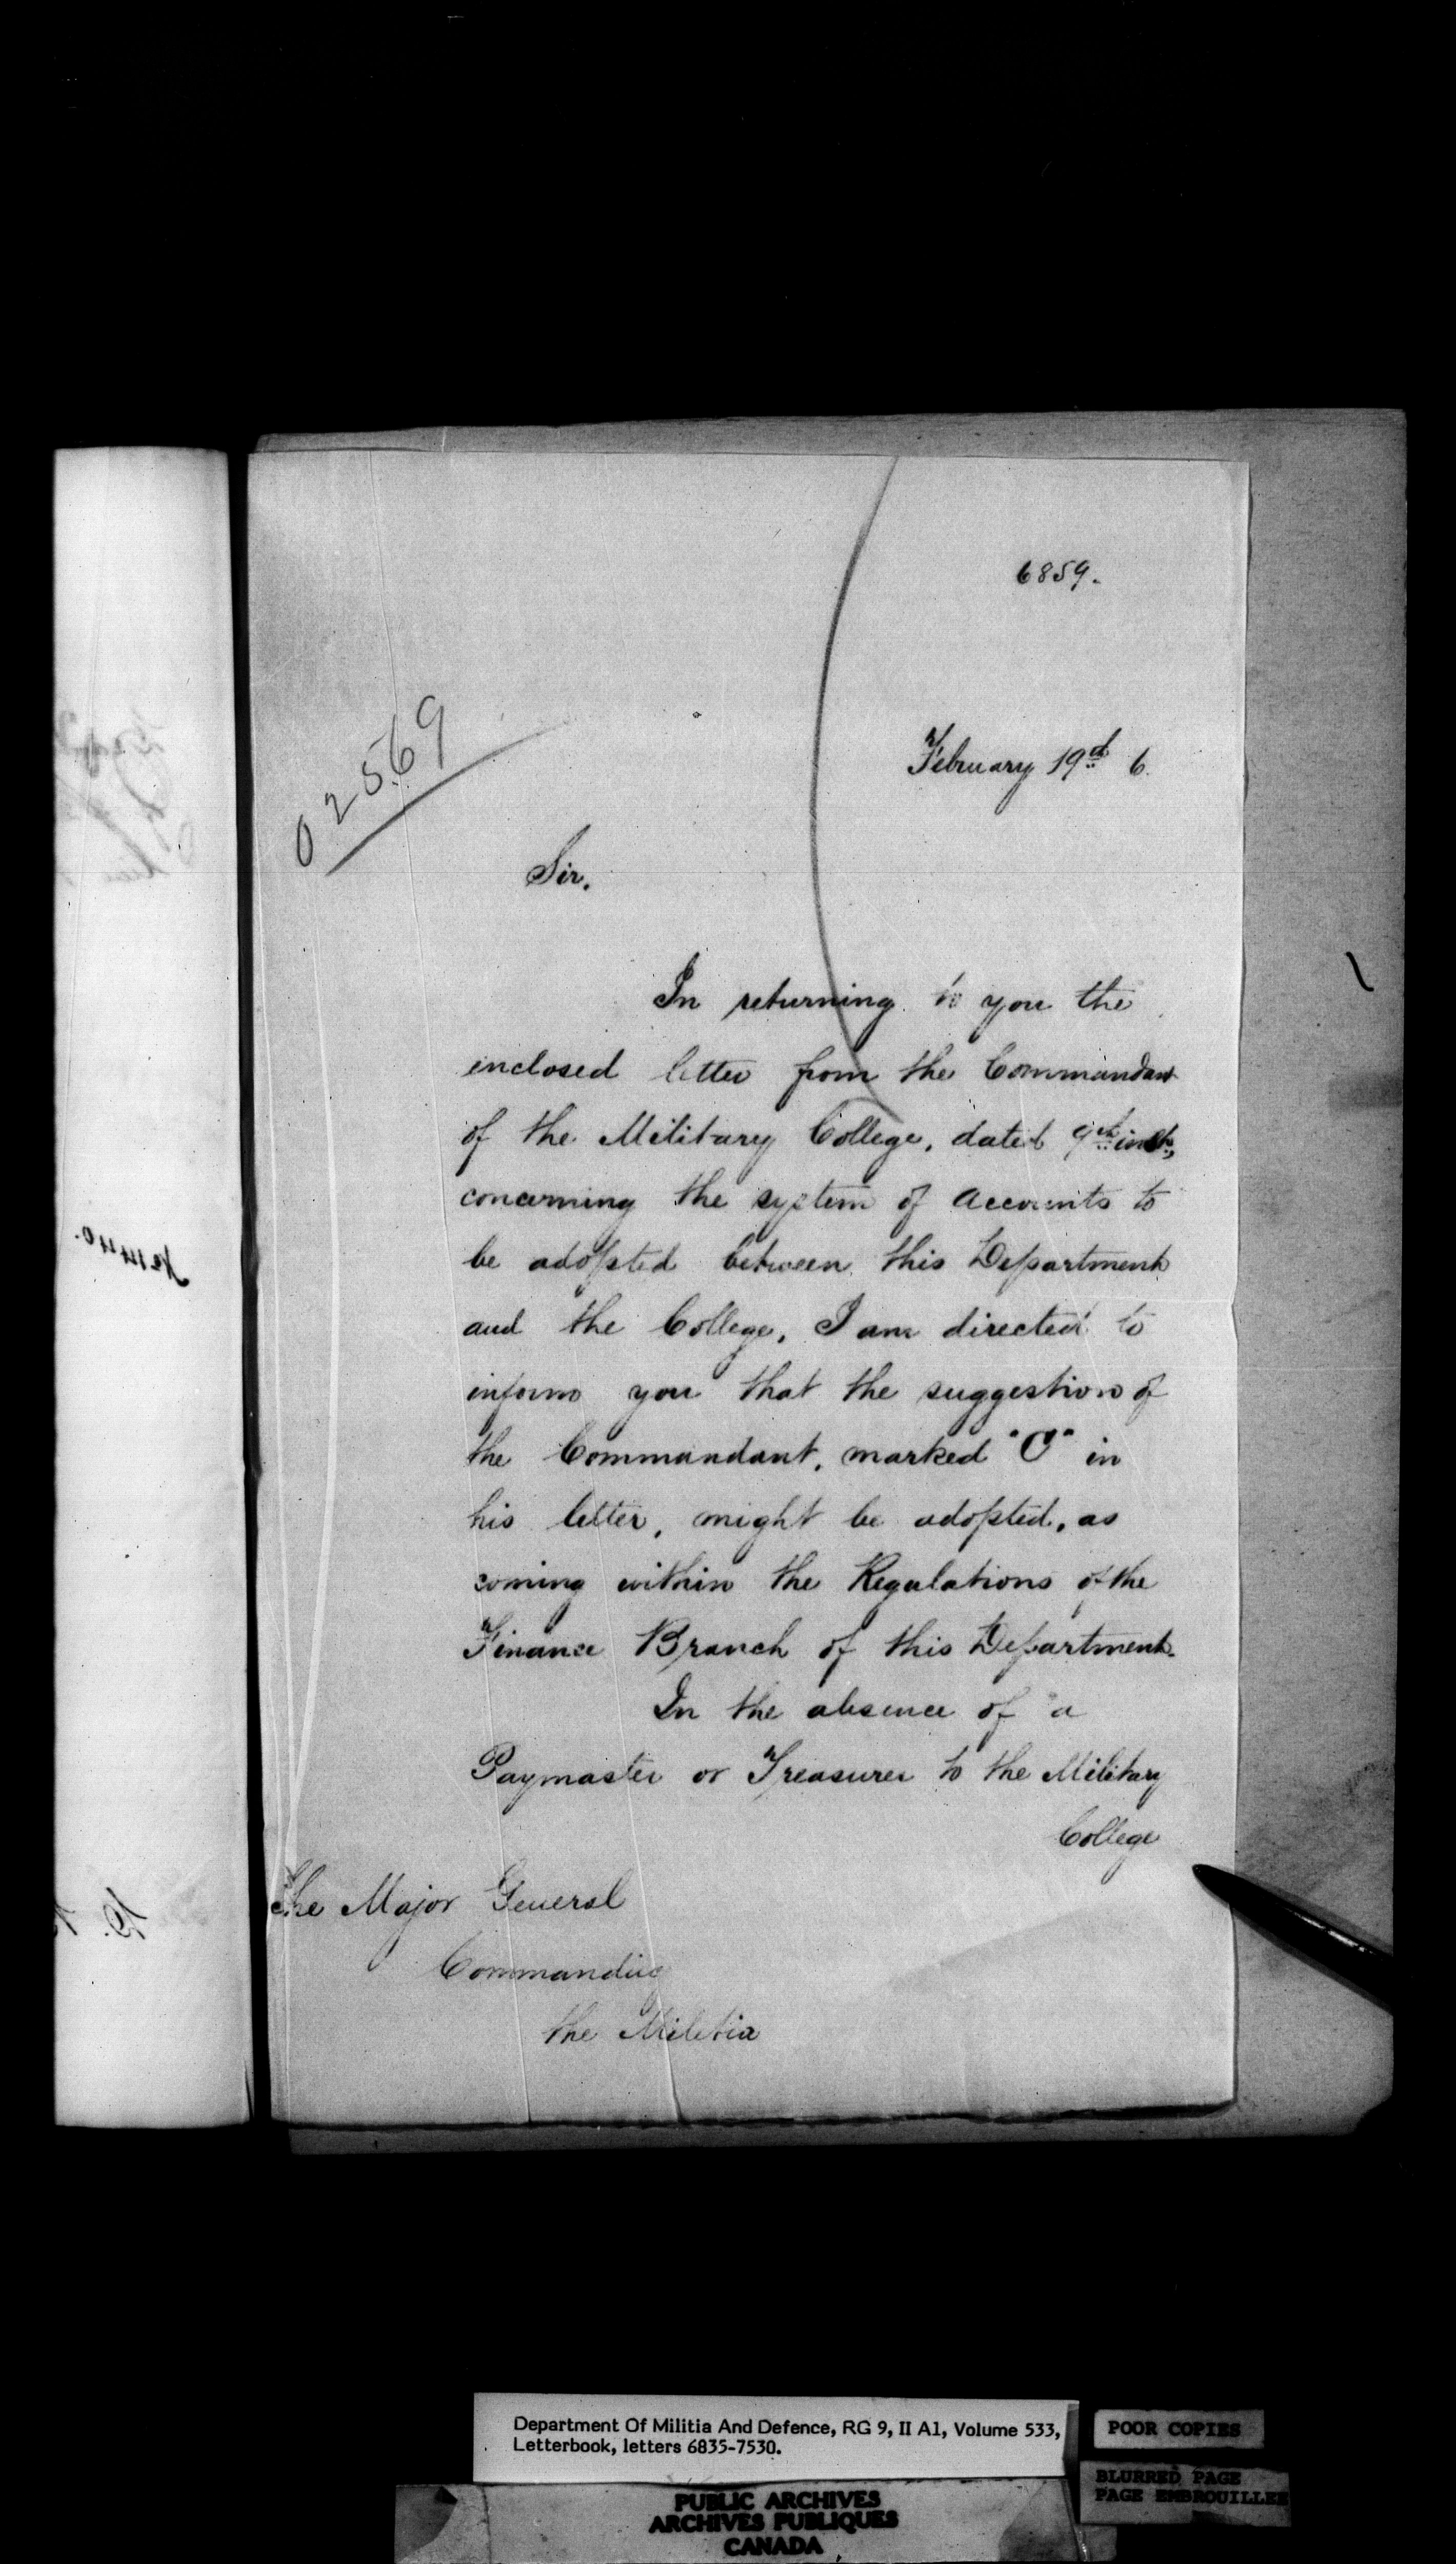 6859.
02569
February 19th 6.
Sir,
In returning to you the
enclosed letter from the Commandant
of the Military College, dated 9th inst,
concerning the system of Accounts to
be adopted between this Department
and the College, I am directed to
inform you that the suggestion of
the Commandant, marked "C" in
his letter, might be adopted, as
coming within the Regulations of the
Finance Branch of this Department.
In the absence of a
Paymaster or Treasurer to the Military
College
The Major General
Commanding
the Militia
Department Of Militia And Defence, RG 9, II A1, Volume 533,
Letterbook, letters 6835-7530.
POOR COPIES
BLURRED PAGE
PAGE EMBROUILLEE
PUBLIC ARCHIVES
ARCHIVES PUBLIQUES
CANADA